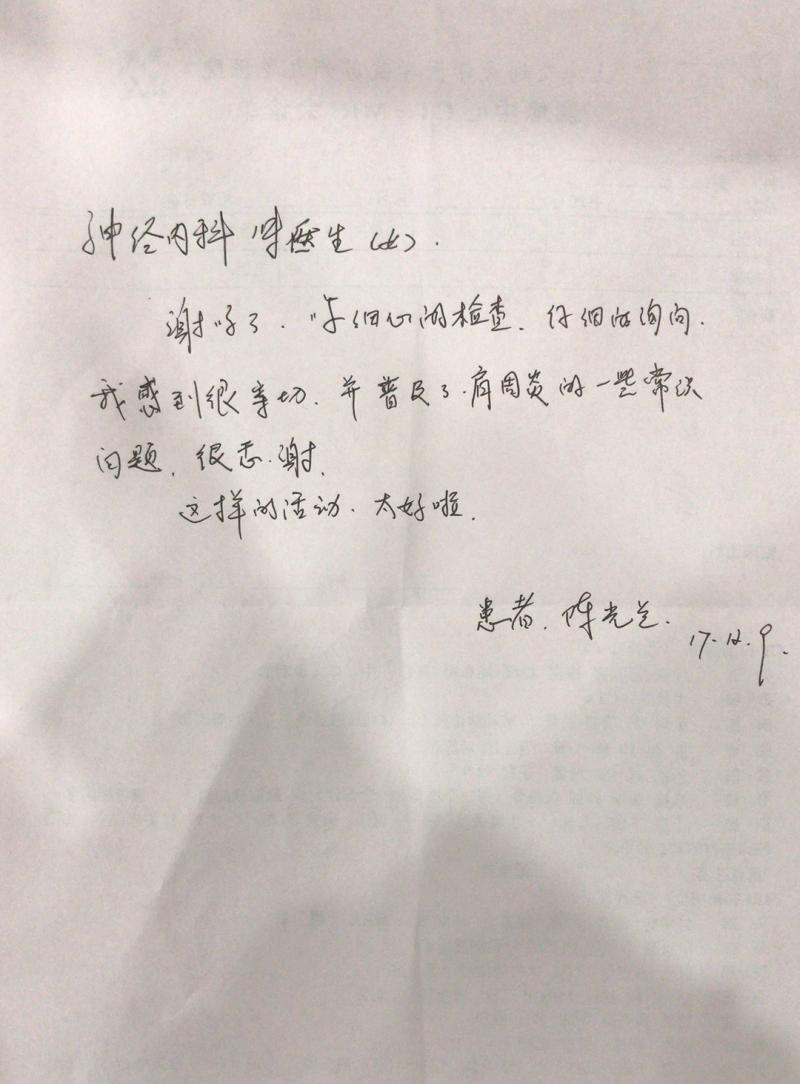 神经内科 医生(女).
谢谢了. 细心的检查. 仔细的询问.
我感到很亲切. 并普及了.肩周炎的一些常识
问题. 很感谢.
这样的活动. 太好啦.
患者. 陈光兰.
17.12.9.